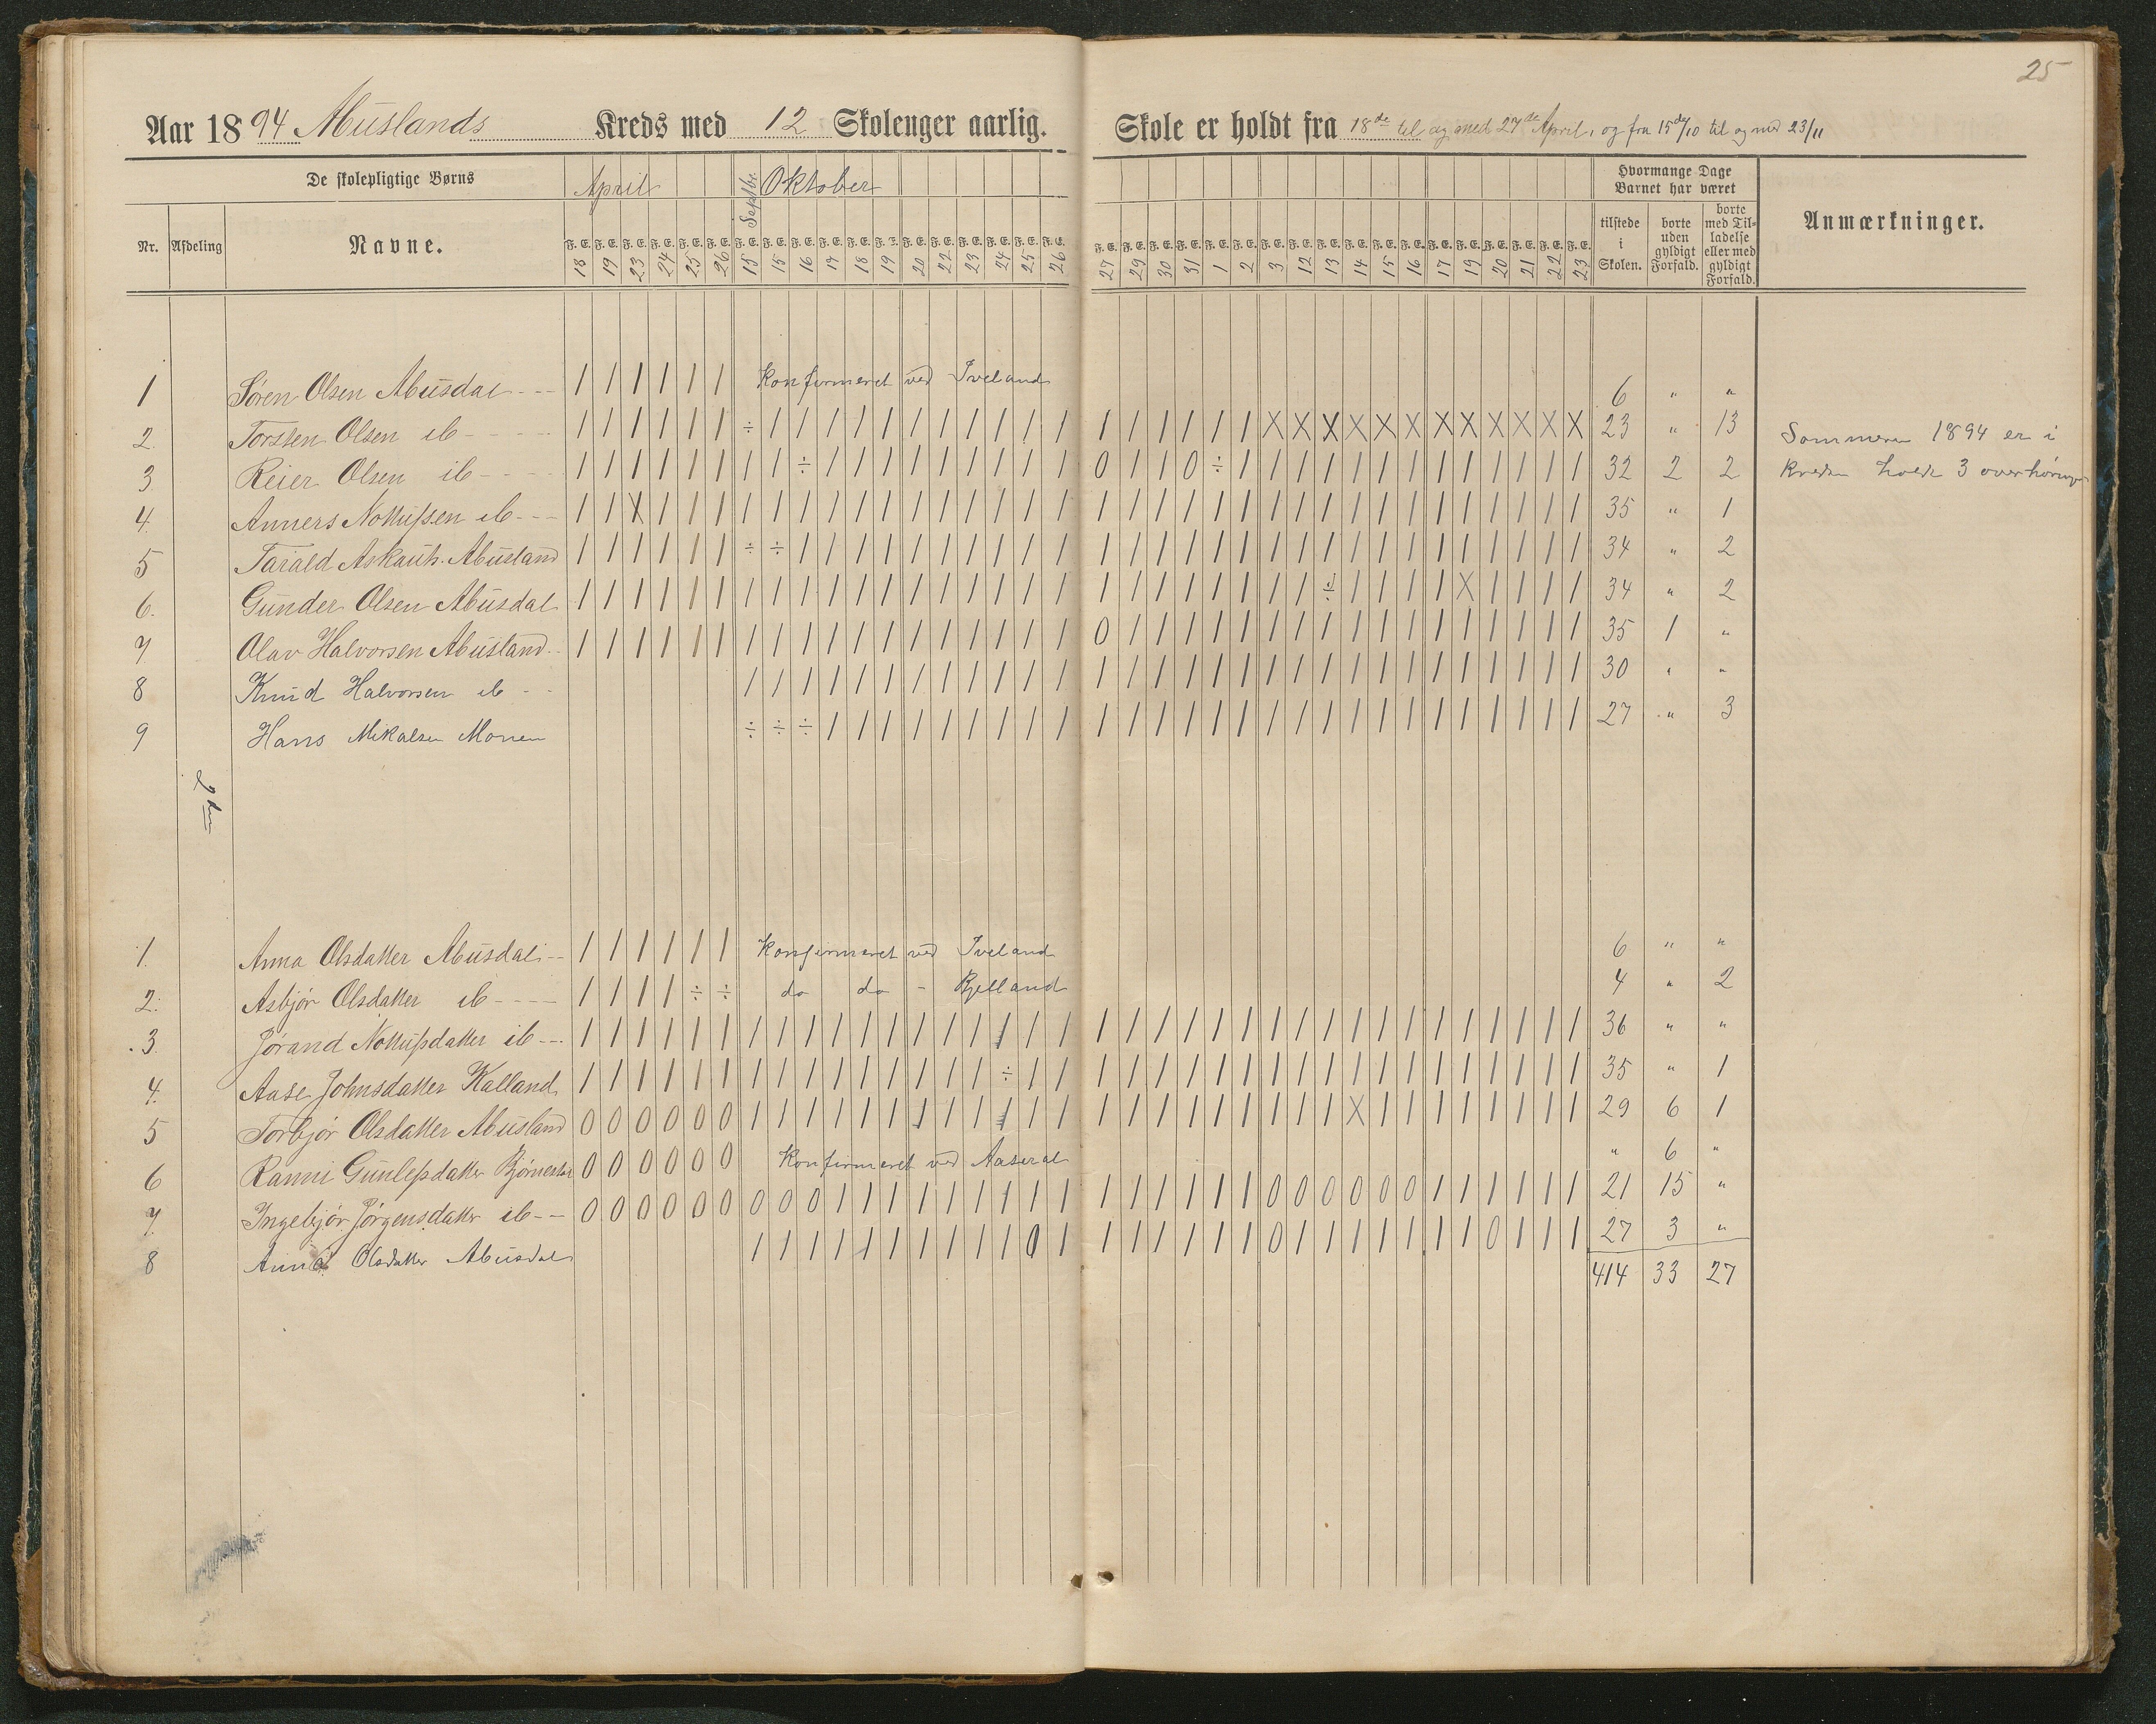 25
Aar 1894 Abuslands Kreds med 12 Skoleuger aarlig.
Skole er holdt fra 18de til og med 27de April, og fra 15de/10 til og med 23/11
De skolepligtige Børns
April Septbr. Oktober
Hvormange Dage Barnet har været
Nr. Afdeling Navne.
F. E. F. E. F. E. F. E. F. E. F. E. F. E. F. E. F. E. F. E. F. E. F. E. F. E. F. E. F. E. F. E. F. E. F. E.
18 19 23 24 25 26 15 15 16 17 18 19 20 22 23 24 25 26
F. E. F. E. F. E. F. E. F. E. F. E. F. E. F. E. F. E. F. E. F. E. F. E. F. E. F. E. F. E. F. E. F. E. F. E.
27 29 30 31 1 2 3 12 13 14 15 16 17 19 20 21 22 23
tilstede i Skolen.
borte uden gyldigt Forfald.
borte med Tilladelse eller med gyldigt Forfald.
Anmærkninger.
1 Søren Olsen Abusdal - - / / / / / / Konfirmeret ved Iveland 6 " "
2. Torsten Olsen ib - - - - / / / / / / ÷ / / / / / / / / / / / / / / / / / X X X X X X X X X X X X 23 " 13
3 Reier Olsen ib - - - - / / / / / / / / ÷ / / / / / / / / / 0 / / 0 ÷ / / / / / / / / / / / / / 32 2 2
4. Anners Nottulssen ib - - - / / X / / / / / / / / / / / / / / / / / / / / / / / / / / / / / / / / / 35 " 1
5 Tarald Askauts. Abusland / / / / / / ÷ ÷ / / / / / / / / / / / / / / / / / / / / / / / / / / / / 34 " 2
6. Gunder Olsen Abusdal / / / / / / / / / / / / / / / / / / / / / / / / / / ÷ / / / / X / / / / 34 " 2
7 Olav Halvorsen Abusland - / / / / / / / / / / / / / / / / / / 0 / / / / / / / / / / / / / / / / / 35 1 "
8 Knud Halvorsen ib - - / / / / / / / / / / / / / / / / / / / / / / / / / / / / / / 30 " "
9 Hans Mikalsen Monen ÷ ÷ ÷ / / / / / / / / / / / / / / / / / / / / / / / / / / / 27 " 3
Sommeren 1894 er i
Kredsen holdt 3 overhøringer
1. Anna Olsdatter Abusdal - - / / / / / / Konfirmeret ved Iveland 6 " "
2. Asbjør Olsdatter ib - - - - / / / / ÷ ÷ do do - Bjelland 4 " 2
3. Jørand Nottulsdatter ib - - / / / / / / / / / / / / / / / / / / / / / / / / / / / / / / / / / / / / 36 " "
4. Aase Johnsdatter Kalland / / / / / / / / / / / / / / / ÷ / / / / / / / / / / / / / / / / / / / / 35 " 1
5 Torbjør Olsdatter Abusland 0 0 0 0 0 0 / / / / / / / / / / / / / / / / / / / / / X / / / / / / / / 29 6 1
6 Ranni Gunlepsdatter Bjørnestøl 0 0 0 0 0 0 Konfirmeret ved Aaseral " 6 "
7. Ingebjør Jørgensdatter ib - - 0 0 0 0 0 0 0 0 0 / / / / / / / / / / / / / / / 0 0 0 0 0 0 / / / / / / 21 15 "
8 Anna Olsdatter Abusdal / / / / / / / / / / 0 / / / / / / / 0 / / / / / / / 0 / / / 27 3 "
414 33 27